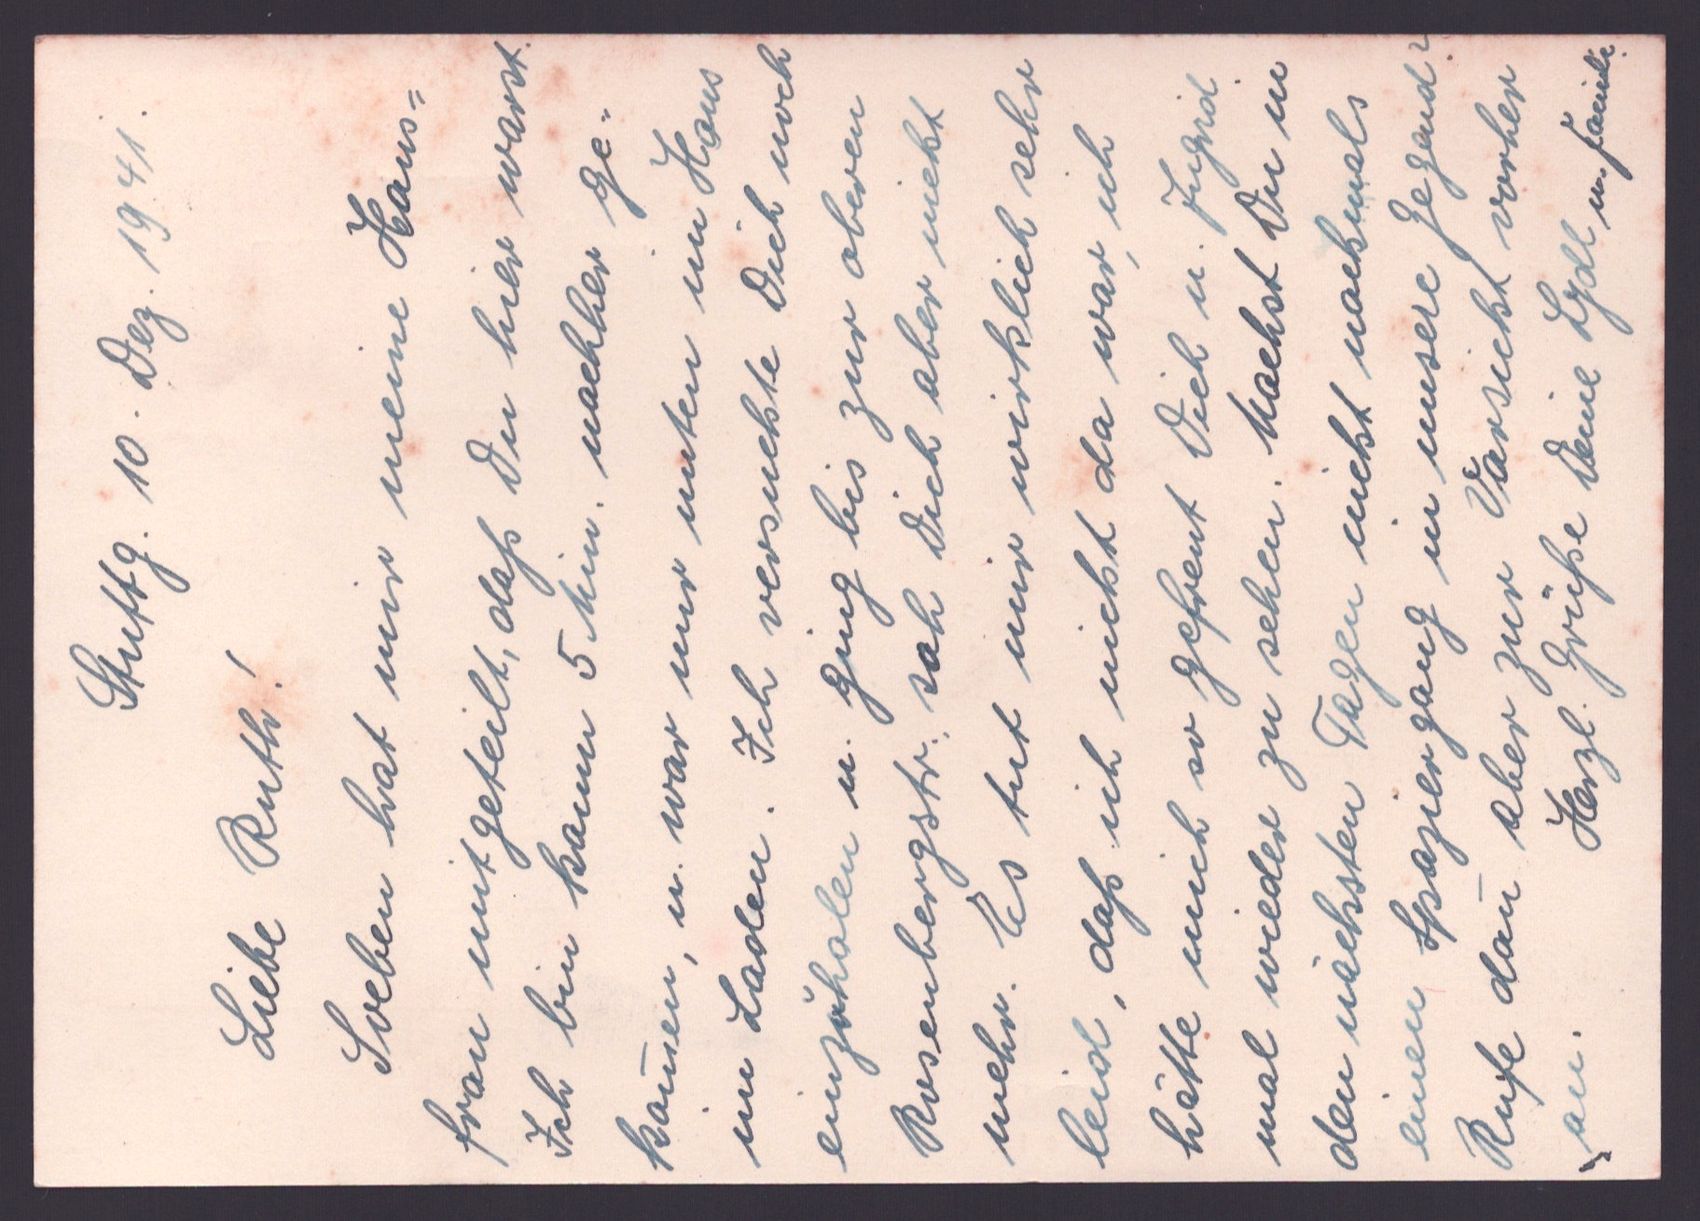 Stuttg. 10. Dez. 1941.
Liebe Ruth!
Soeben hat mir meine Haus=
frau mitgeteilt, daß Du hier warst.
Ich bin kaum 5 Min. nachher ge=
kom̄en, u. war nur unten im Haus
im Laden. Ich versuchte Dich noch
einzuholen u. ging bis zur oberen
Rosenbergstr., sah Dich aber nicht
mehr. Es tut mir wirklich sehr
leid, daß ich nicht da war, ich
hätte mich so gefreut Dich u. Ingrid
mal wieder zu sehen. Machst Du in
den nächsten Tagen nicht nochmals
einen Spaziergang in unsere Gegend?
Rufe dan̄ aber zur Vorsicht vorher
an. Herzl. Grüße Deine Lydl u. Familie.